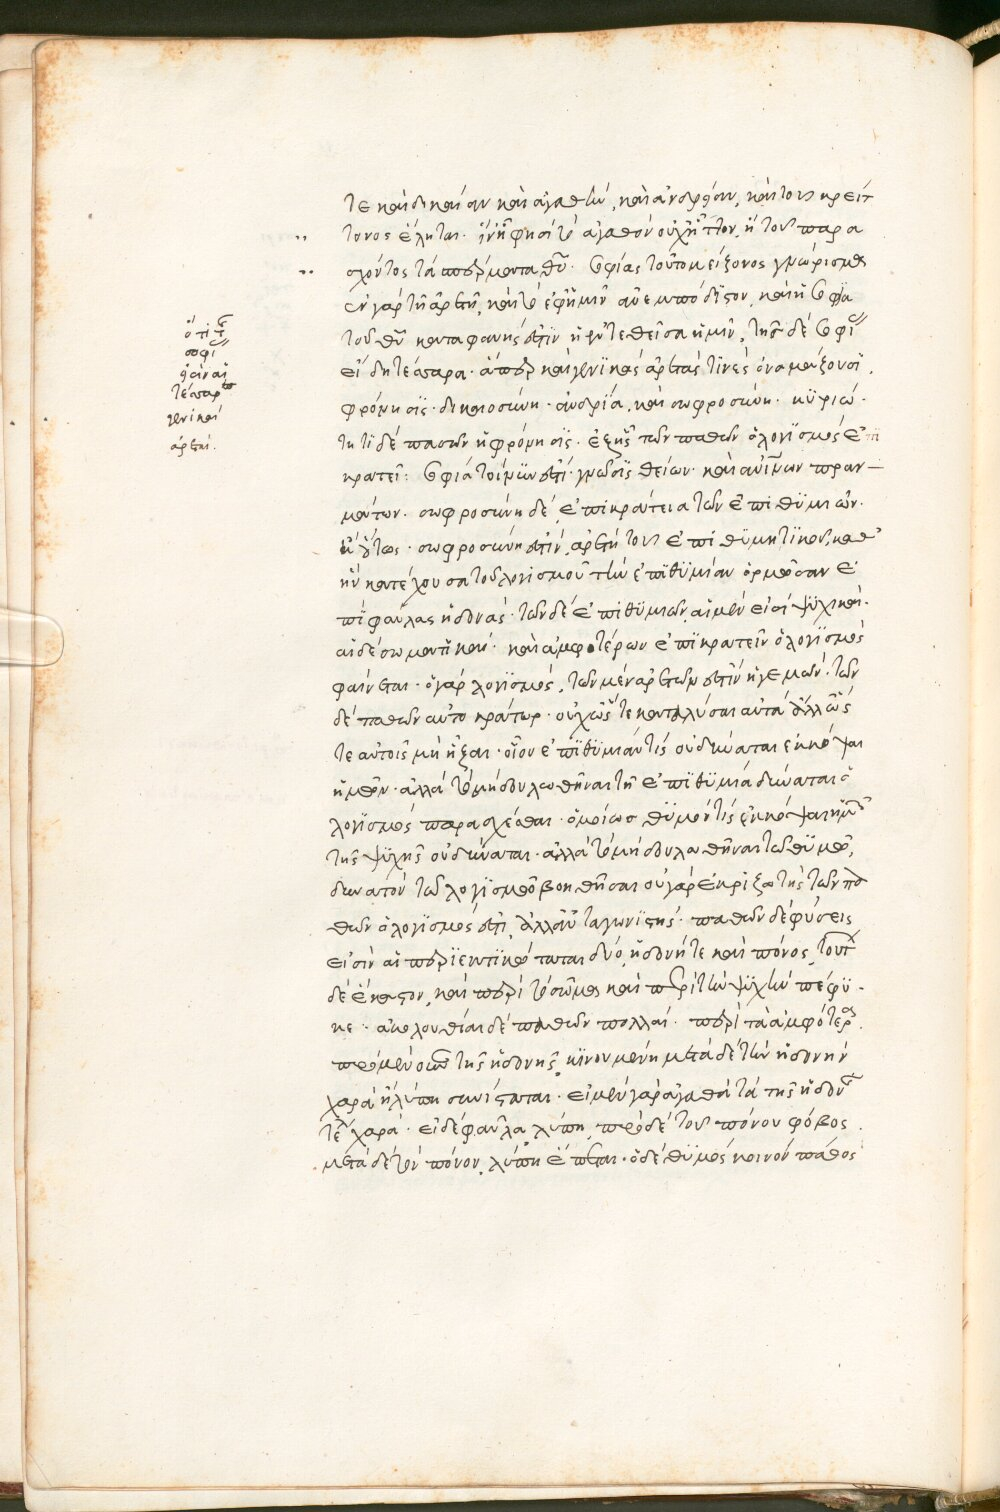 ὅτι τ
σοφί
εἰσὶν αἱ
τέσσαρ
γενικαί
ἀρεταί.
τε καὶ δικαίαν καὶ ἀγαθὴν, καὶ ἀνδρείαν, καὶ τοῦ κρείτ
τονος ἕληται. φησὶ τὸ ἀγαθὸν οὐχ ἧττον ἢ τοῦ παρα
σχόντος τὰ σπέρματα θῦ. σοφίας τοῦτο μείζονος γνώρισμα
ἐν γὰρ τῆ ἀρετῆ, καὶ τὸ ἐφ' ἡμῖν καὶ ἡ σοφία
τοῦ θῦ καταφανής ἐστιν ἡ ἐντεθεῖσα ἡμῖν, τῆς δὲ σοφί
εἴδη τέσσαρα. ἅπερ καὶ γενικὰς ἀρετάς τινὲς ὀνομάζουσι,
φρόνησις. δικαιοσύνη. ἀνδρία, καὶ σωφροσύνη. κυριω
τάτη δὲ πασῶν ἡ φρόνησις. ἐξ ἧς τῶν παθῶν ὁ λογισμὸς ἐπι
κρατεῖ: σοφία τοίνυν ἐστὶ γνῶσις θείων καὶ ἀνίνων πραγ
μάτων. σωφροσύνη δὲ, ἐπικράτεια τῶν ἐπιθυμιῶν.
ἢ οὕτως. σωφροσύνη ἐστὶν, ἀρετὴ τοῦ ἐπιθυμητικοῦ, καθ'
ἣν κατέχουσα τοῦ λογισμοῦ τὴν ἐπιθυμίαν ὁρμῶσαν ἐ
πὶ φαύλας ἡδονάς. τῶν δὲ ἐπιθυμιῶν, αἱ μὲν εἰσὶ ψυχικαὶ.
αἱ δὲ σωματικαί. καὶ ἀμφοτέρων ἐπικρατεῖν ὁ λογισμὸς
φαίνεται. ὁ γὰρ λογισμὸς, τῶν μὲν ἀρετῶν ἐστὶν ἡγεμών. τῶν
δὲ παθῶν αὐτοκράτωρ. οὐχ ὥστε καταλύσαι αὐτὰ ἀλλ' ὥς
τε αὐτοῖς μὴ εἶξαι. οἷον ἐπιθυμίαν τὶς οὐ δύναται ἐκκόψαι
ἡμῶν. ἀλλὰ τὸ μὴ δουλωθῆναι τῆ ἐπιθυμία δύναται ὁ
λογισμὸς παρασχέσθαι. ὁμοίως θυμόν τὶς ἐκκόψαι ἡμῶν
τῆς ψυχῆς οὐ δύναται. ἀλλὰ τὸ μὴ δουλωθῆναι τῶ θυμῶ,
δυνατὸν τῶ λογισμῶ βοηθῆσαι οὐ γὰρ ἐκριζωτὴς τῶν πα
θῶν ὁ λογισμός ἐστι, ἀλλ' ἀνταγωνιστής. παθῶν δὲ φύσεις
εἰσὶν αἱ περιεκτικώταται δύο, ἡδονή τε καὶ πόνος, τούτ
δὲ ἕκαστον, καὶ περὶ τὸ σῶμα καὶ περὶ τὴν ψυχὴν πέφυ
κε. ἀκολουθίαι δὲ παθῶν πολλαί. περὶ τὰ ἀμφότερα.
πρὸ μὲν οὖν τῆς ἡδονῆς, κινουμένη μετὰ δὲ τὴν ἡδονὴν
χαρὰ ἢ λύπη συνίσταται. εἰ μὲν γὰρ ἀγαθὰ τὰ τῆς ἡδονῆς
χαρά. εἰ δὲ φαῦλα, λύπη, πρὸ δὲ τοῦ πόνου φόβος.
μετὰ δὲ τὸν πόνον, λύπη ἕπεται. ὁ δὲ θυμὸς κοινὸν πάθος